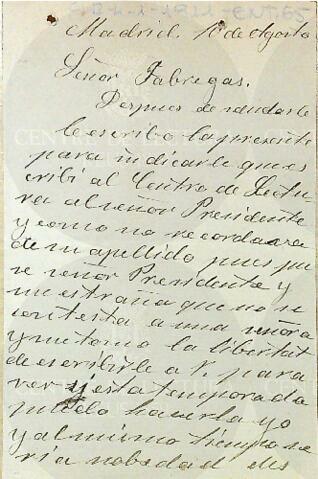 C.E.L.1-1911-ENT.65
Madrid. 10 de Agosto
Señor Fabregas.
Despues de saludarle
le escribo la presente
para indicarle que es
cribí al Centro de Lectu
ra al señor Presidente
y como no recordara
de su apellido puse
se señor Presidente y
me estraña que no se
contesta a una señora
y me tomo la libertat
de escribirle a V para
ver si esta temporada
puedo hacerla yo
y al mismo tiempo se
ria nobedad des